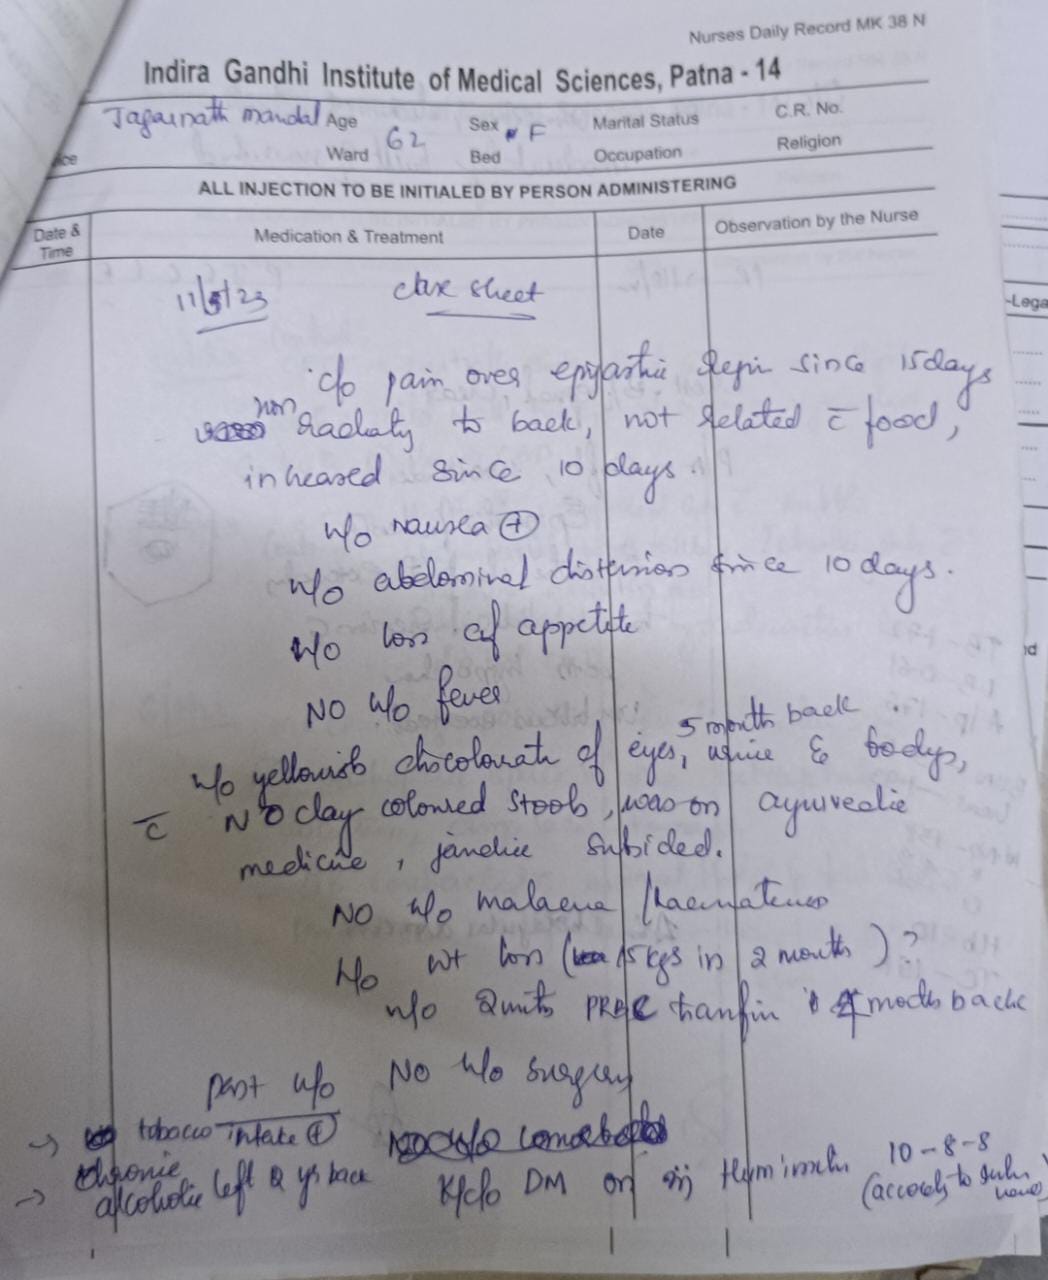 Nurses Daily Record MK 38 N
Indira Gandhi Institute of Medical Sciences, Patna - 14
Jagarnath mandal Age 62 Sex F Marital Status C.R. No.
Ward Bed Occupation Religion
ALL INJECTION TO BE INITIALED BY PERSON ADMINISTERING
Date & Time Medication & Treatment Date Observation by the Nurse
11/5/23 sheet
c/o pain over since 15 days
non to back, not related c̄ food,
since 10 days.
H/o nausea ⊕
H/o abdominal since 10 days.
H/o loss of appetite
NO H/o fever
5 month back
H/o yellowish of eyes, & body,
c̄ NO clay coloured stools, was on
medicine, subsided.
NO H/o malaena /
H/o wt loss ( 15 kgs in 2 month)?
H/o 2 units PRBC back
past H/o NO H/o surgery
→ tobacco intake ⊕
→ chronic alcoholic left 2 yrs back
K/c/o DM on 10-8-8
-Lega